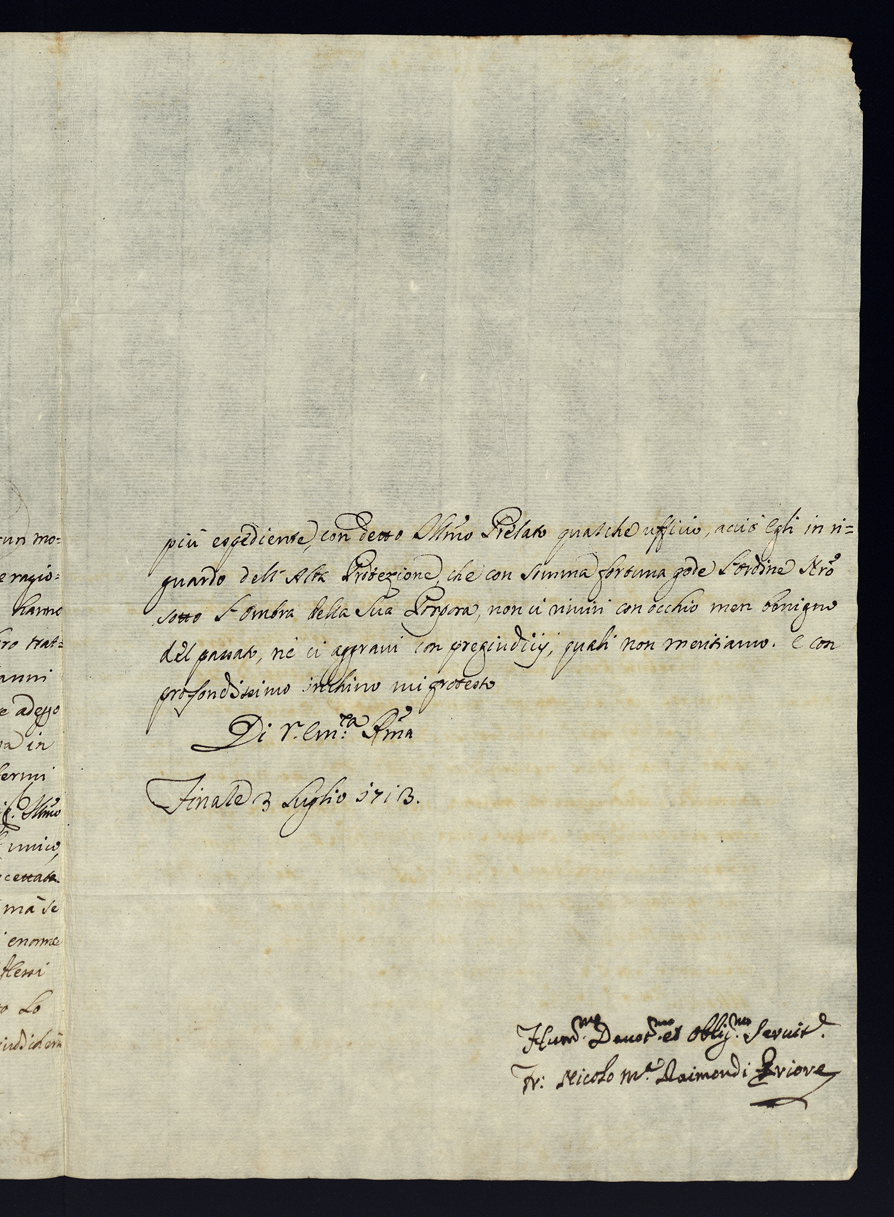 cun mo=
e ragio=
hanno
ro trat=
anni
e adesso
in
fermi
Illmo
unico,
ccettata
ma se
enorme
Lo
più espediente, con detto Illmo Prelato qualche ufficio, acciò Egli in ri=
guardo dell' Alta Protezione, che con summa fortuna gode l'ordine Nro
sotto l'ombra della Sua Porpora, non ci rimiri con occhio men benigno
del passato, nè ci aggravi con pregiudicij, quali non meritiamo. E con
profondissimo inchino mi protesto
Di V. Em:za Rma
Finale 3 Luglio 1713.
Hum.mo Devot.mo et Oblig.mo Servit.e
Fr: Nicolo M.a Raimondi Priore